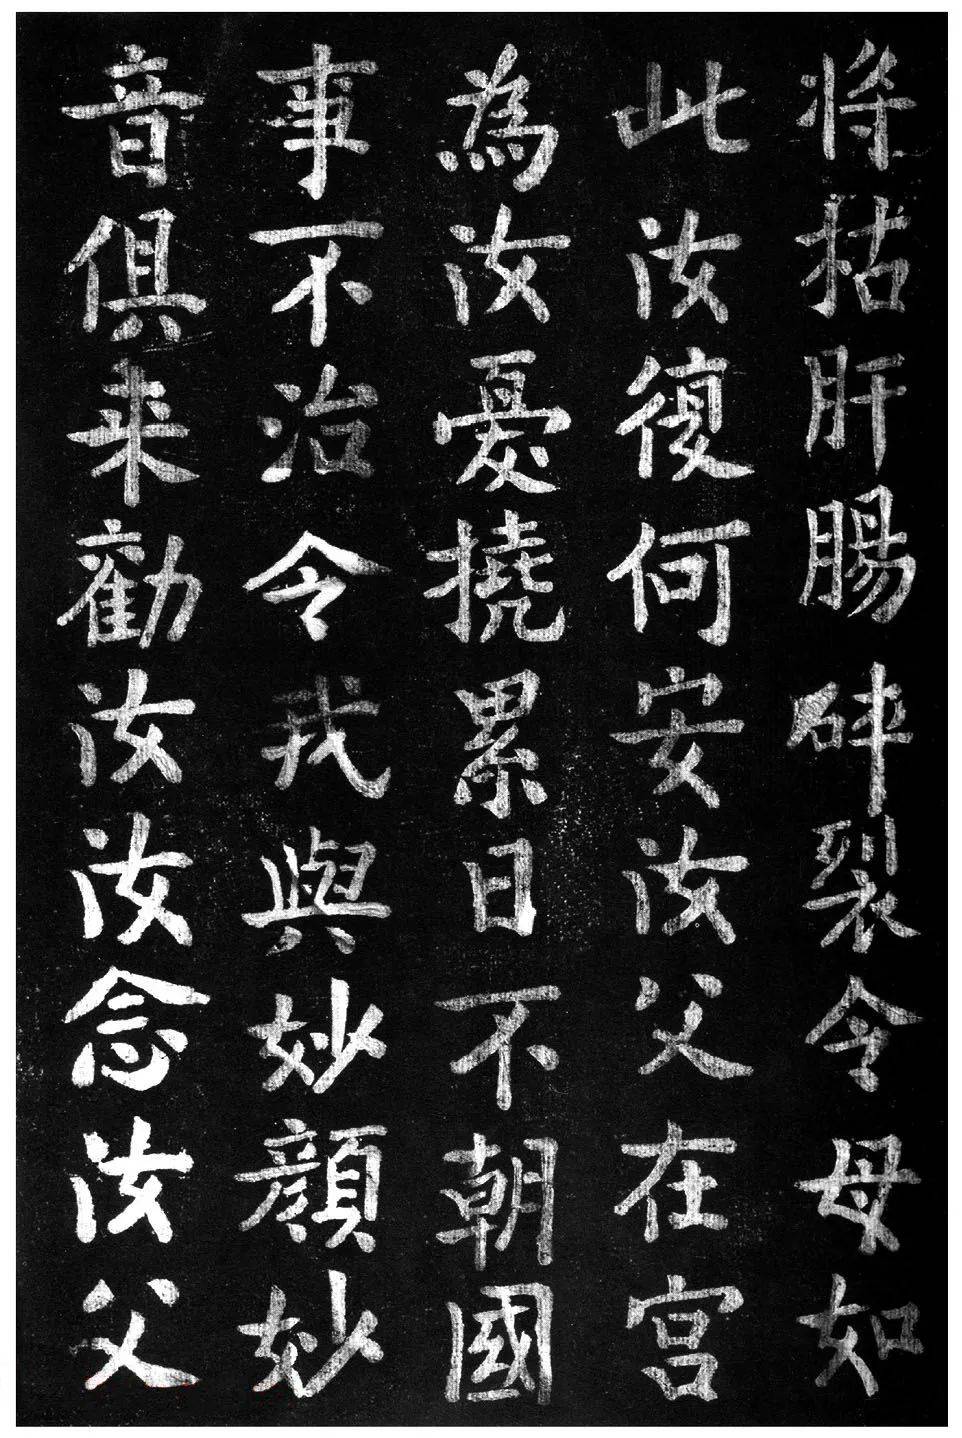 将枯肝腸碎裂令母如
此汝復何安汝父在宫
為汝憂撓累日不朝國
事不治令我與妙顔妙
音俱来勸汝汝念汝父